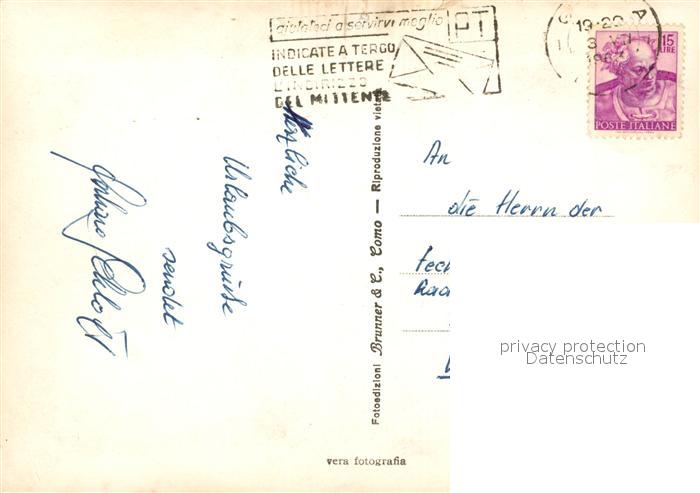 aiutateci a servirvi meglio
PT
INDICATE A TERGO
DELLE LETTERE
L'INDIRIZZO
DEL MITTENTE
19-20
15
LIRE
POSTE ITALIANE
Herzliche
Urlaubsgrüße
sendet
An
die Herrn der
Fotoedizioni Brunner & C., Como — Riproduzione vietata
vera fotografia
privacy protection
Datenschutz